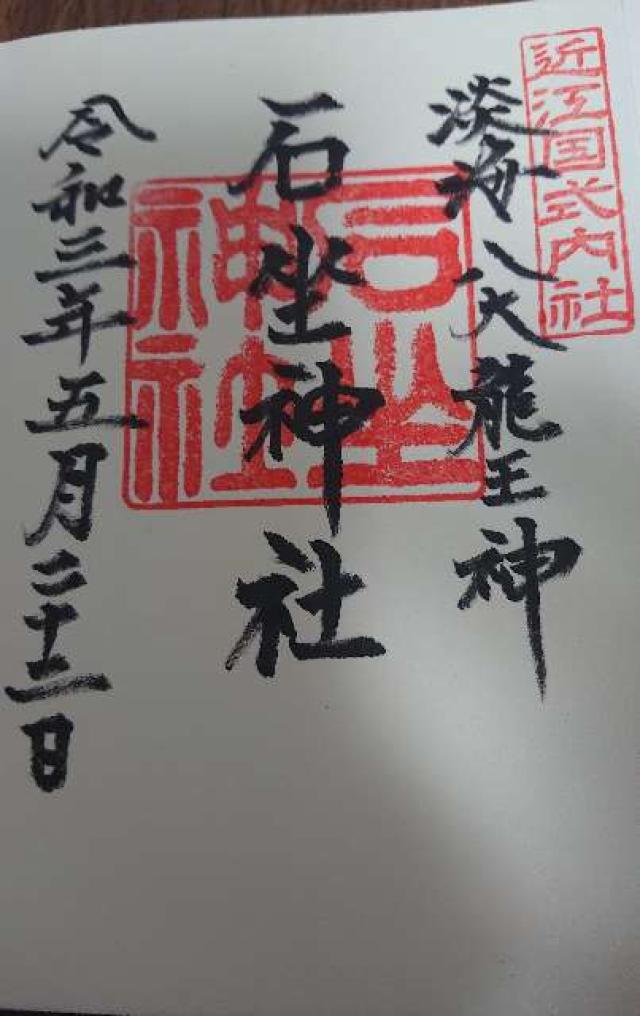 近江国式内社
淡海八大龍王神
石坐神社
石坐神社
令和三年五月二十二日